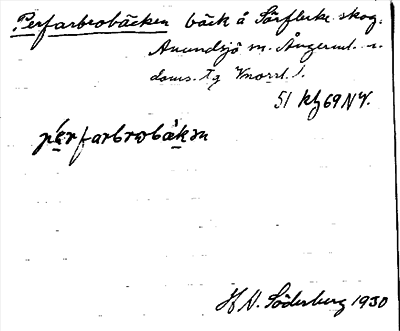 Perfarbrobäcken bäck å Särflerke skog.
Anundsjö sn. Ångerml. n.
doms. Tg
51 69 NV.
pérfarbrobäkɜn
H. N. Söderberg 1930